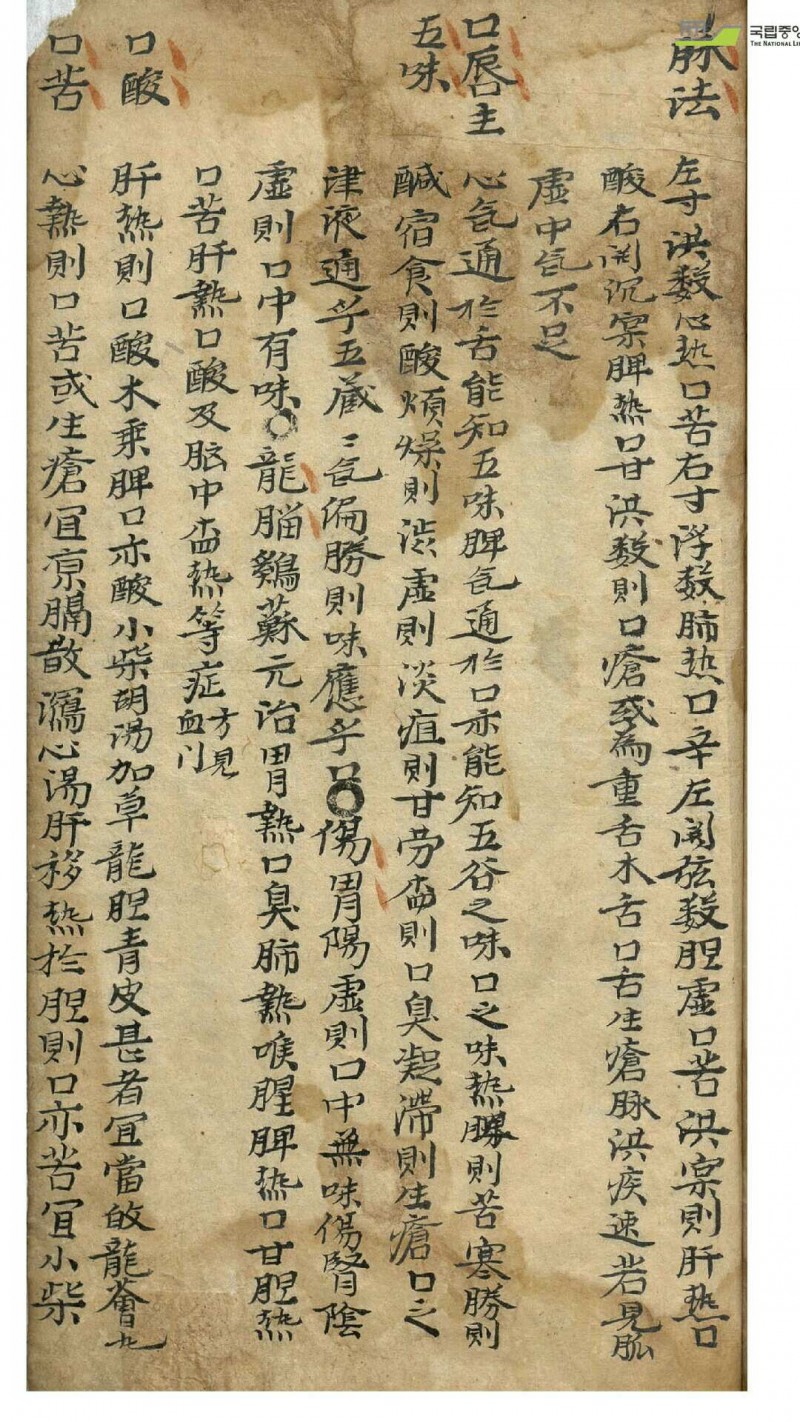 脉法
左寸洪数心热口苦右寸浮数肺热口辛左関弦数胆虚口苦洪实則肝熱口
酸右関沉实脾热口甘洪数則口瘡或為重舌木舌口舌生瘡脉洪疾速若見脉
虚中气不足
口唇主
五味
心气通於舌能知五味脾气通於口亦能知五谷之味口之味热勝則苦寒勝則
醎宿食則酸煩燥則渋虚則淡疸則甘劳欝則口臭凝滞則生瘡口之
津液通乎五藏〻气偏勝則味應乎口○傷胃陽虚則口中無味傷腎陰
虚則口中有味○龍腦鷄蘇元治胃熱口臭肺熱喉腥脾热口甘胆热
口苦肝熱口酸及胸中欝热等症方見
血门
口酸
肝热則口酸木乘脾口亦酸小柴胡湯加草龍胆青皮甚者宜當故龍薈丸
口苦
心熱則口苦或生瘡宜凉膈散瀉心湯肝移热於胆則口亦苦宜小柴
국립중앙
THE NATIONAL LI